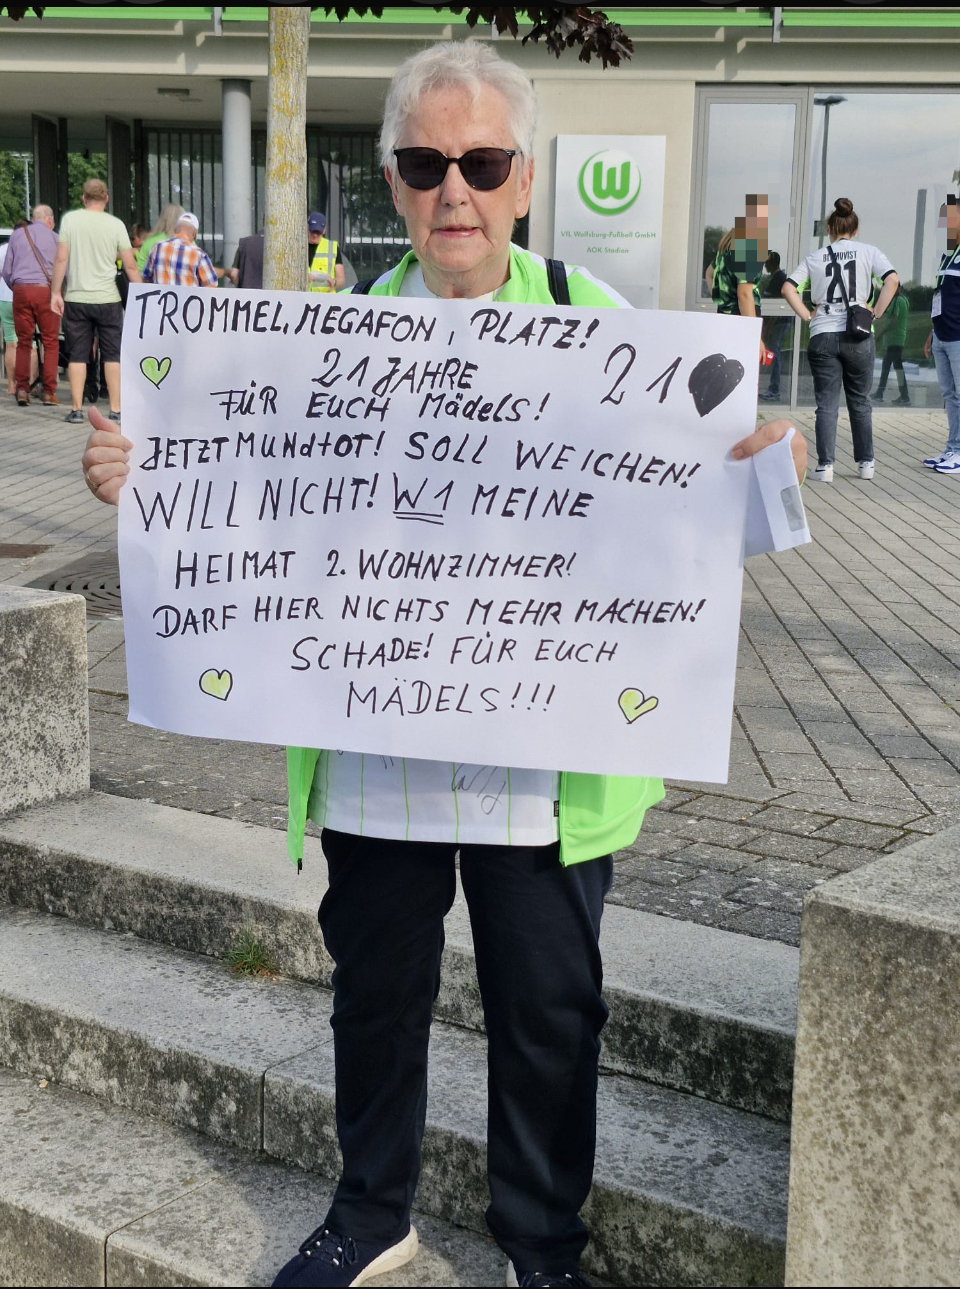 TROMMEL, MEGAFON, PLATZ!
21 JAHRE
FÜR EUCH Mädels!
21
JETZT MUNdtOT! SOLL WEICHEN!
WILL NICHT! W1 MEINE
HEIMAT 2. WOHNZIMMER!
DARF HIER NICHTS MEHR MACHEN!
SCHADE! FÜR EUCH
MÄDELS!!!
W
VfL Wolfsburg-Fußball GmbH
AOK Stadion
21